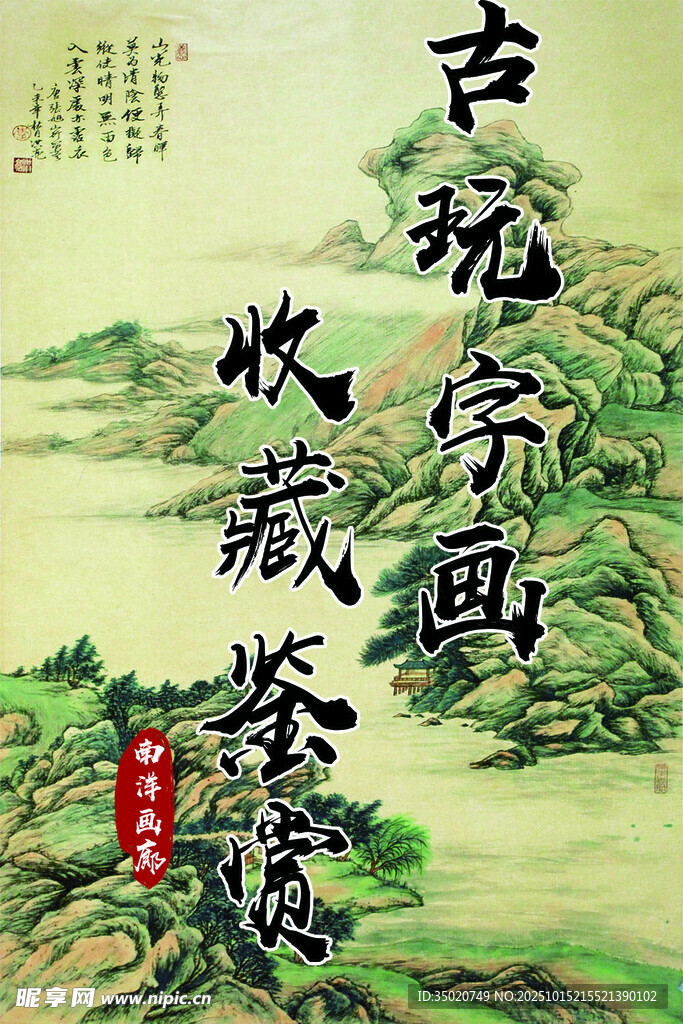 古玩字画
收藏鉴赏
山光物态弄春晖
莫为轻阴便拟归
纵使晴明无雨色
入云深处亦沾衣
南洋画廊
昵享网 www.nipic.cn
ID:35020749 NO:20251015215521390102